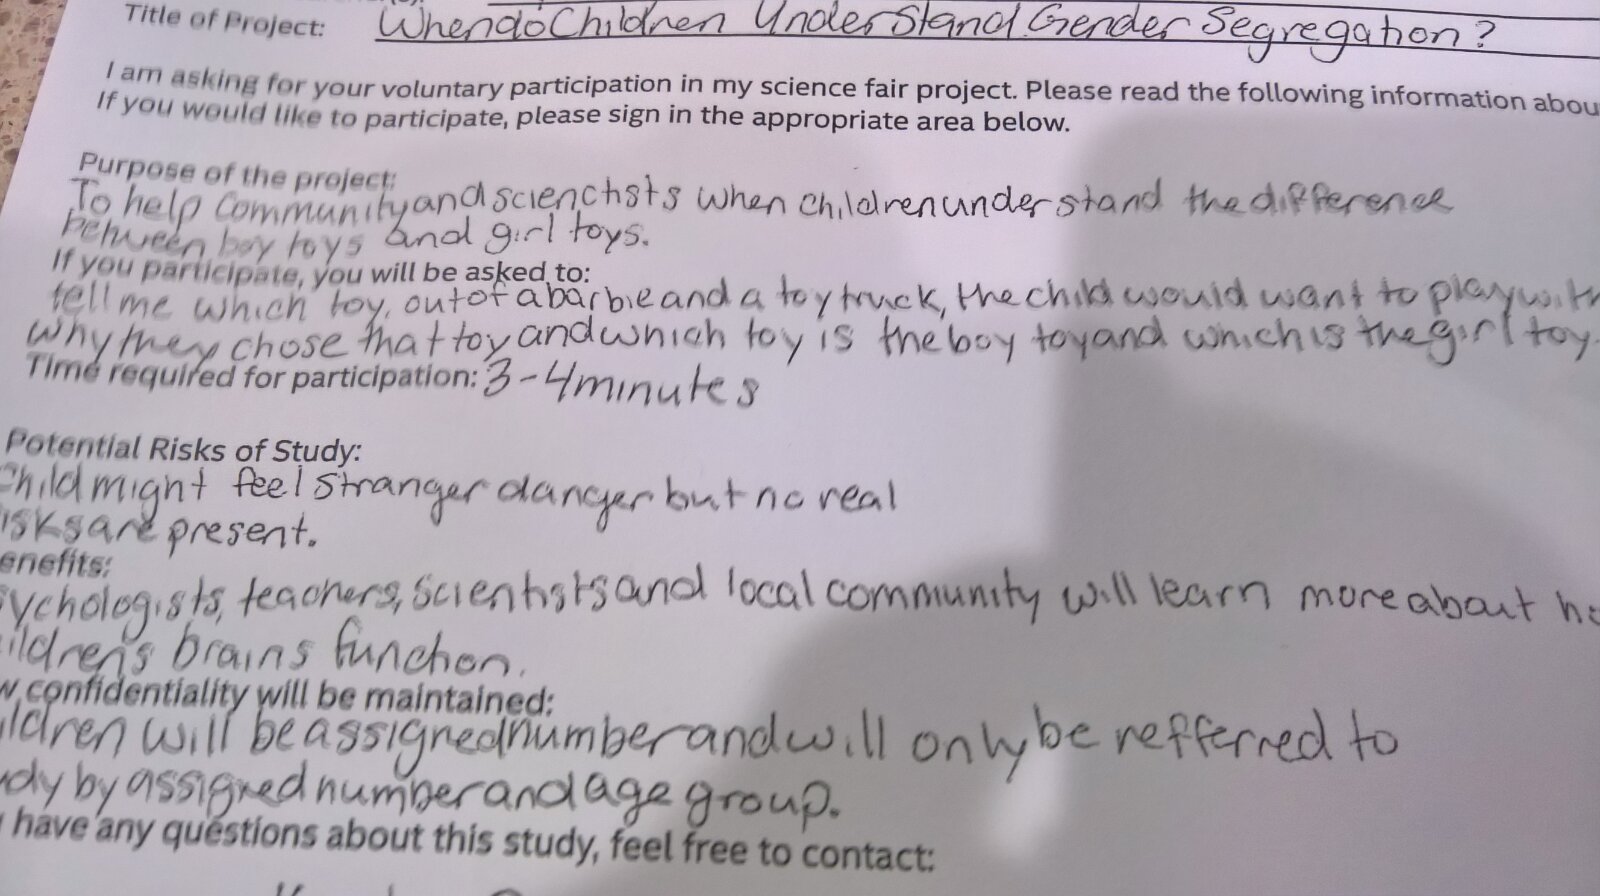 Title of Project: When do Children Understand Gender Segregation?
I am asking for your voluntary participation in my science fair project. Please read the following information abou
If you would like to participate, please sign in the appropriate area below.
Purpose of the project:
To help community and scienctists when children understand the difference
between boy toys and girl toys.
If you participate, you will be asked to:
tell me which toy, out of a barbie and a toy truck, the child would want to play with
why they chose that toy and which toy is the boy toy and which is the girl toy.
Time required for participation: 3-4 minutes
Potential Risks of Study:
Child might feel stranger danger but no real
isks are present.
enefits:
sychologists, teachers, scientists and local community will learn more about ho
ildren's brains function.
w confidentiality will be maintained:
ildren will be assigned number and will only be refferred to
udy by assigned number and age group.
have any questions about this study, feel free to contact: